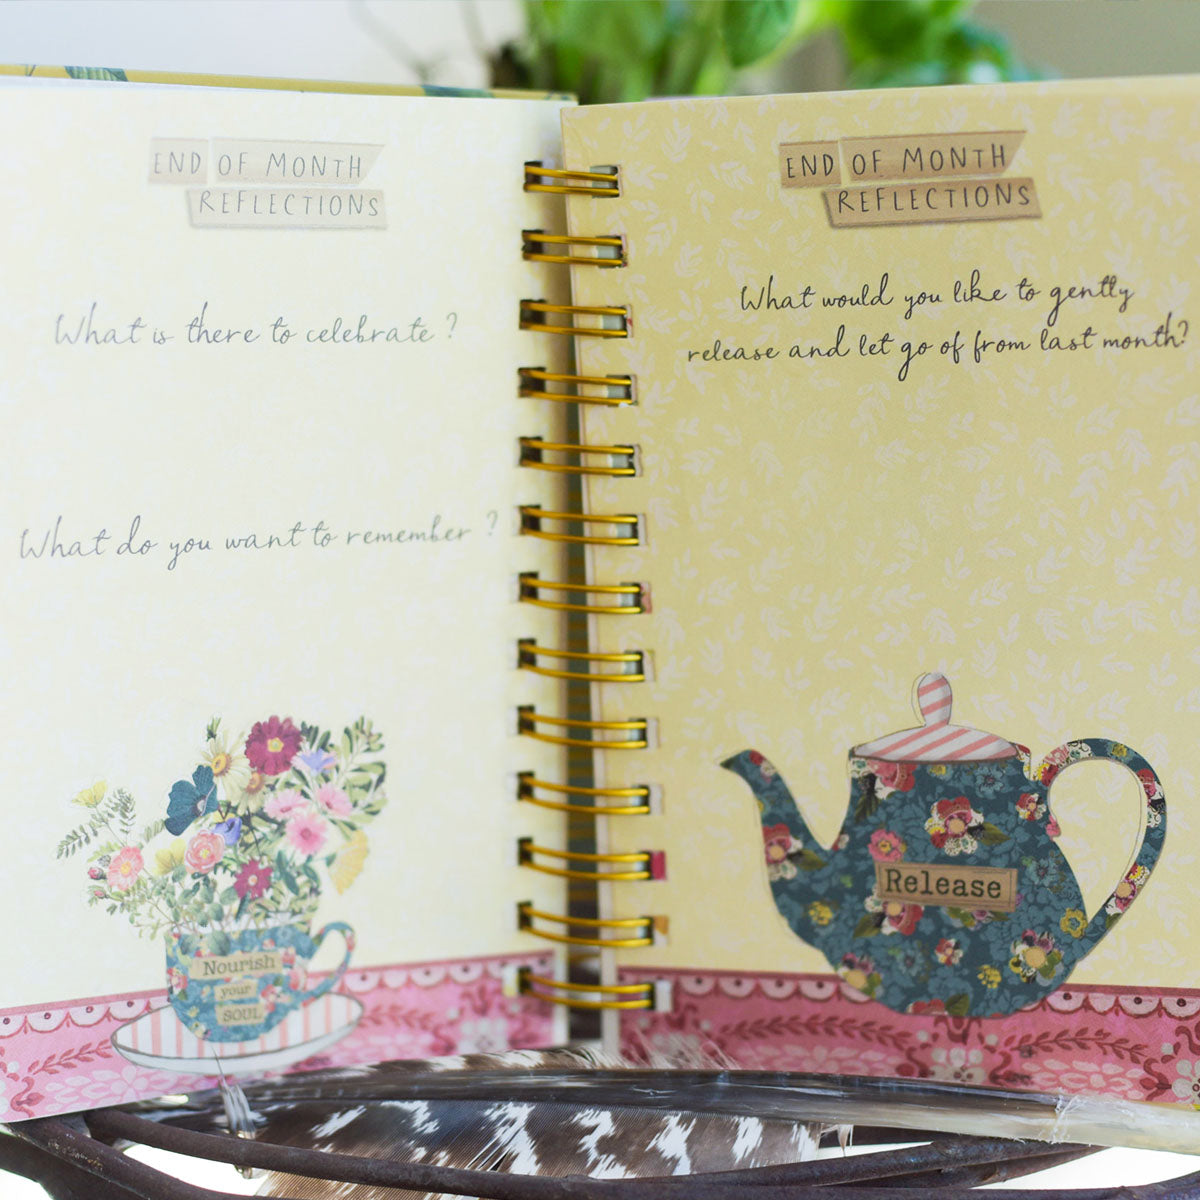 END OF MONTH
REFLECTIONS
What is there to celebrate ?
What do you want to remember ?
Nourish
your
SOUL
END OF MONTH
REFLECTIONS
What would you like to gently
release and let go of from last month?
Release